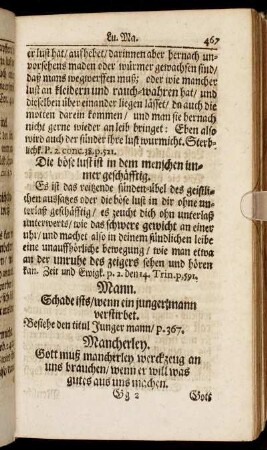 Lu. Ma. 467
er lust hat/ aufhebet/ darinnen aber hernach un-
vorsehens maden oder würmer gewachsen sind/
daß mans wegwerffen muß; oder wie mancher
lust an kleidern und rauch-wahren hat/ und
dieselben über einander liegen lässet/ da auch die
motten darein kommen/ und man sie hernach
nicht gerne wieder an leib bringet: Eben also
wird auch der sünder ihre lust wurmicht. Sterb-
licht. P. 2. conc. 38. p. 521.
Die böse lust ist in dem menschen im-
mer geschäfftig.
Es ist das reitzende sünden-übel des geistli-
chen aussatzes oder die böse lust in dir ohne unter-
laß geschäfftig/ es zeucht dich ohn unterlaß
unterwerts/ wie das schwere gewicht an einer
uhr/ und machet also in deinem sündlichen leibe
eine unauffhörliche bewegung/ wie man etwa
an der unruhe des zeigers sehen und hören
kan. Zeit und Ewigk. p. 2. den 14. Trin. p. 591.
Mann.
Schade ists/ wenn ein junger mann
verstirbet.
Besiehe den titul Junger mann/ p. 367.
Mancherley.
Gott muß mancherley werckzeug an
uns brauchen/ wenn er will was
gutes aus uns machen.
Gg 2 Gott